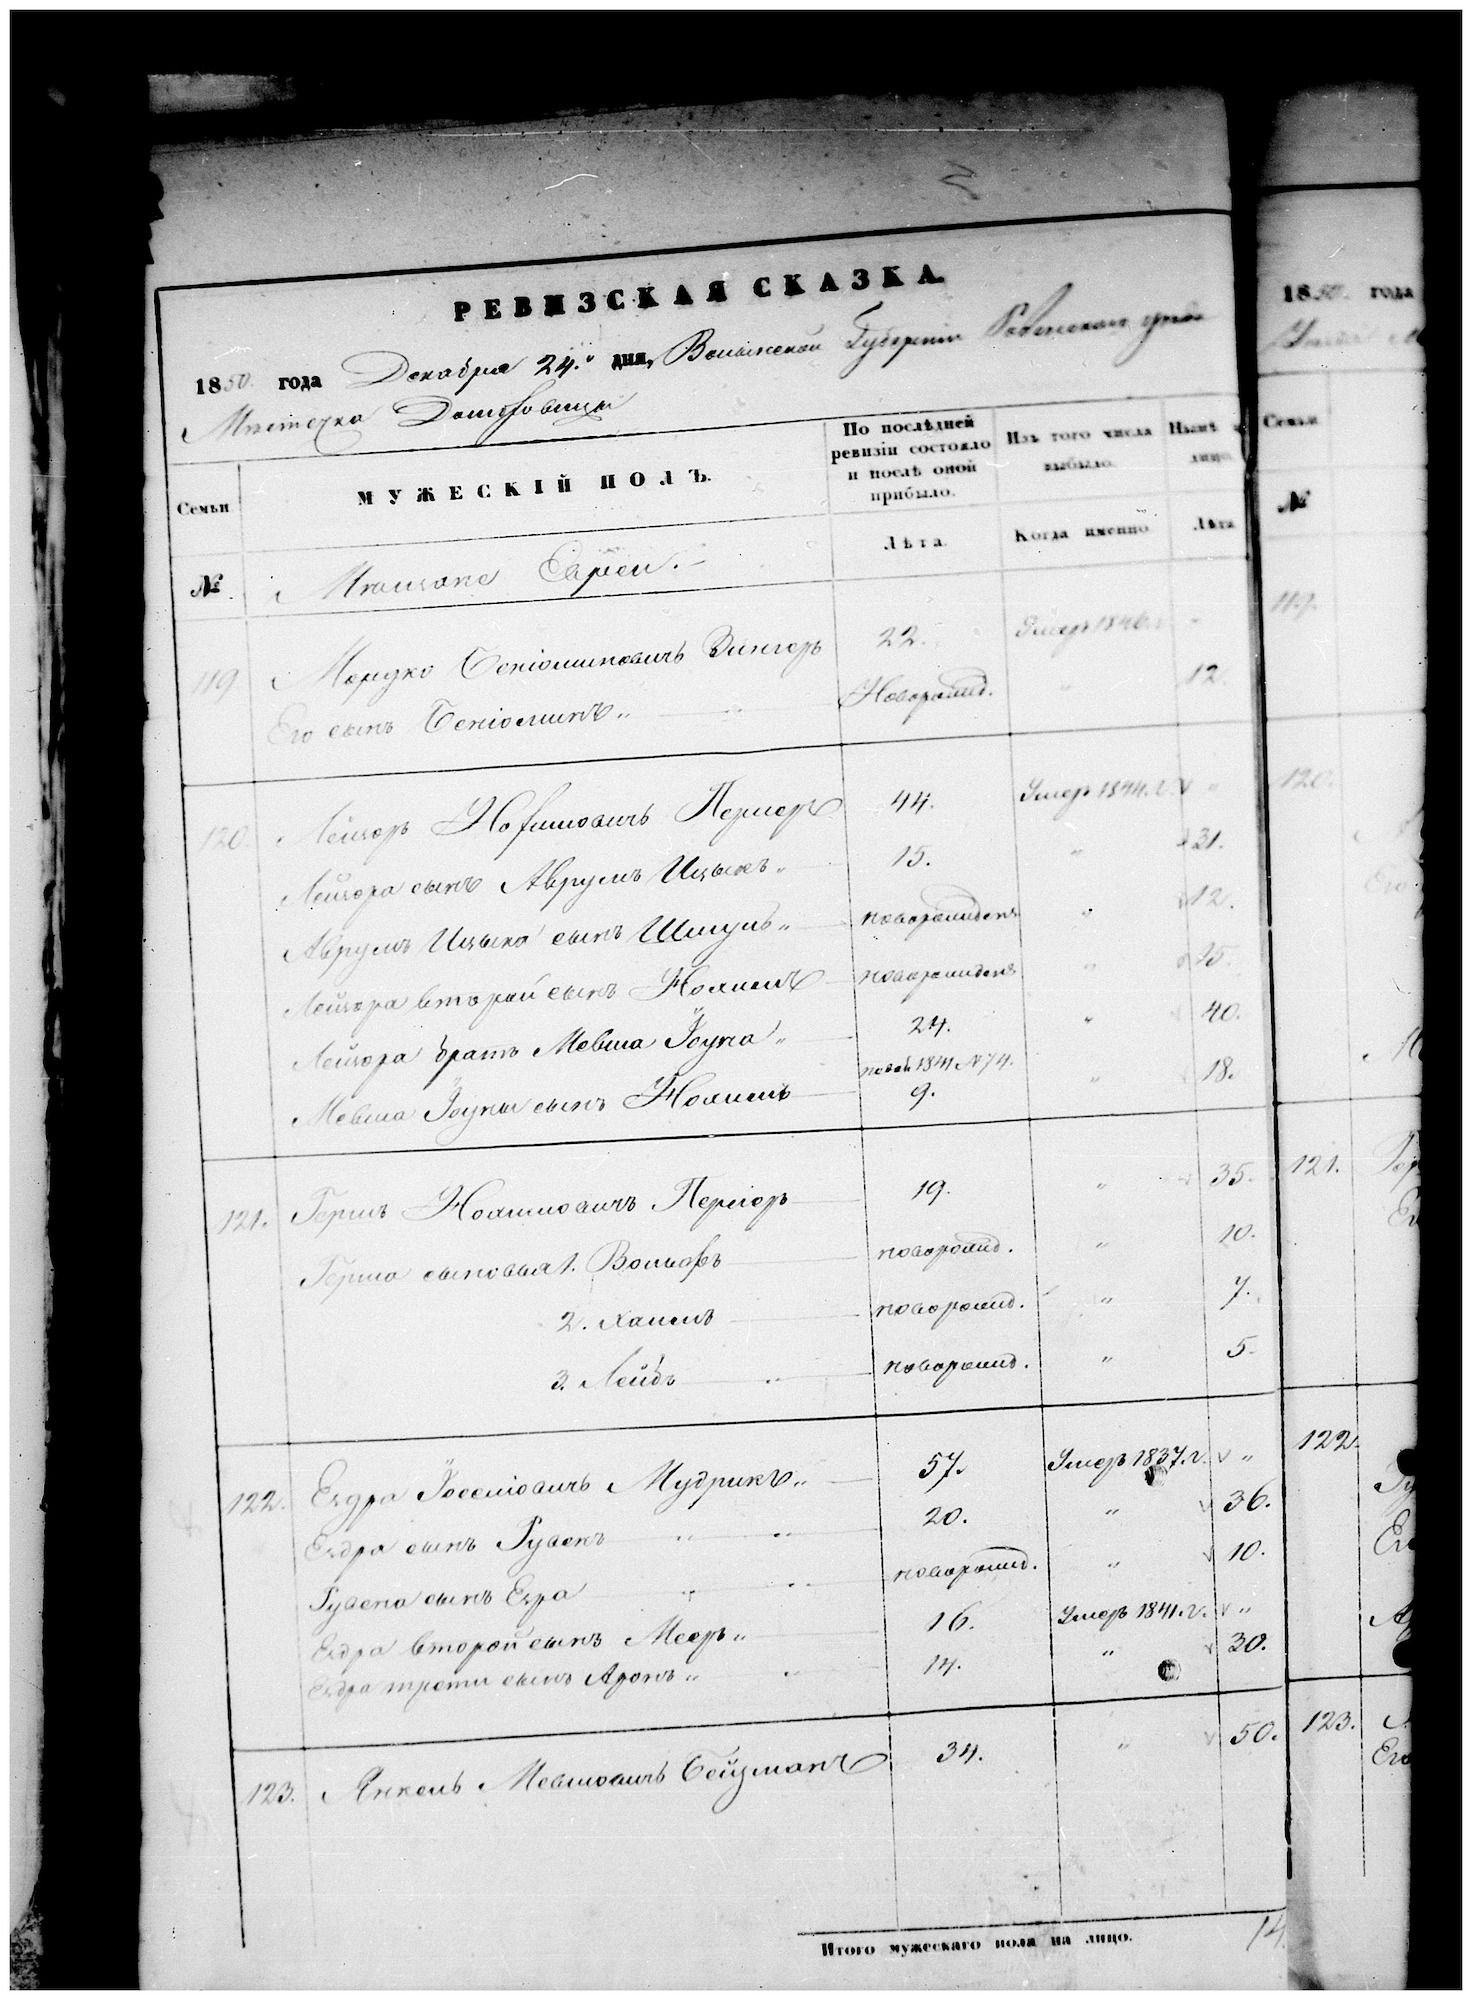 РЕВИЗСКАЯ СКАЗКА.
1850. года Декабря 24.го дня, Волынской Губернии Ровенского уезда
Местечка Домбровицы
Семьи
№
МУЖЕСКІЙ ПОЛЪ.
По послѣдней ревизіи состояло и послѣ оной прибыло.
Изъ того числа выбыло.
Нынѣ
лицо.
Лѣта.
Когда именно
Лѣта
Мещане Евреи.
119 Мордко Бениоминовичъ Зингеръ 22. Умеръ 1846 "
Его сынъ Бениоминъ " Новорожд. " 12.
120. Лейзоръ Нохимовичъ Перперъ 44. Умеръ 1844. г. "
Лейзора сынъ Аврумъ Ицыкъ " 15. " 31.
Аврумъ Ицыка сынъ Шмуль " новорожденъ " 12.
Лейзора второй сынъ Нохимъ новорожденъ " 25.
Лейзора братъ Мовша Іоуна " 24. " 40.
Мовша Іоуны сынъ Нохимъ 1841 № 74. 9. " 18.
121. Гершъ Нохимовичъ Перперъ 19. " 35.
Герша сыновья 1. Вольфъ новорожд. " 10.
2. Хаимъ новорожд. " 7.
3. Лейбъ " новорожд. " 5.
122. Ездра Іосіовичъ Мудрикъ " 57. Умеръ 1837. г. "
Ездра сынъ Рувенъ " " 20. " 36.
Рувена сынъ Езра " " новорожд. " 10.
Ездра второй сынъ Мееръ " 16. Умеръ 1841. г. "
Ездра трети сынъ Аронъ " " 14. " 30.
123. Янкель Мовшовичъ Бейзманъ 34. " 50.
Итого мужескаго пола на лицо. 14.
1850. года
Семьи
№
119.
120.
121.
122.
123.